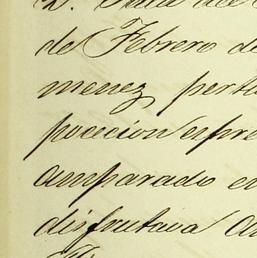 de Febrero de
menez perte
pocicion espre
amparado en
disfrutava